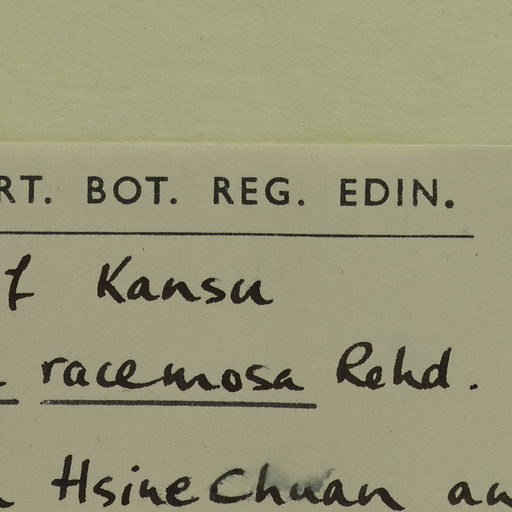 RT. BOT. REG. EDIN.
f Kansu
racemosa Rehd.
Hsine Chuan an